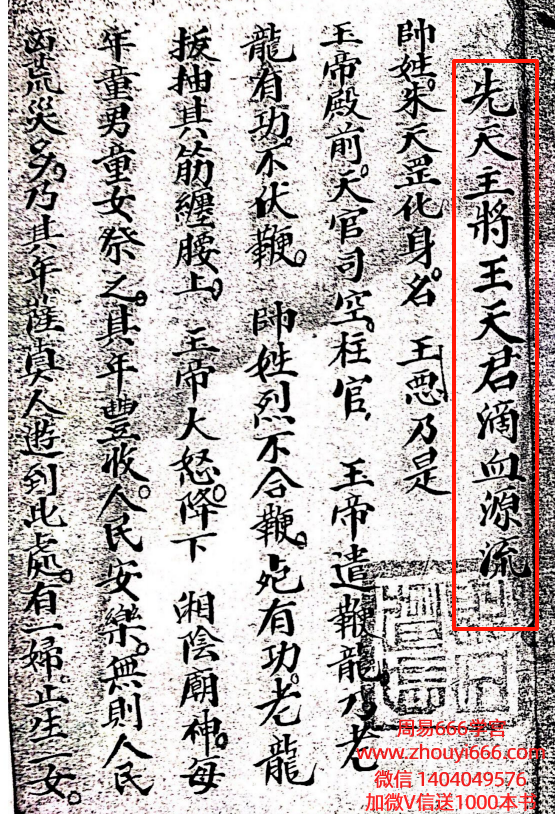 先天王將王天君滴血源流
帥姓。朱天罡化身名。 王惡乃是
王帝殿前。天官司空。柱官 王帝遣鞭龍。乃老
龍有功。不伏鞭。 帥姓烈不合鞭。有功。老龍
扳抽其筋纏腰上。 王帝大怒。降下 湘陰廟神。每
年童男童女祭之。其年豐收。人民安樂。無則人民
凶荒災多。乃其年薩真人遊到此處。有一婦。止生一女。
周易666学官
www.zhouyi666.com
微信 1404049576
加微V信送1000本书